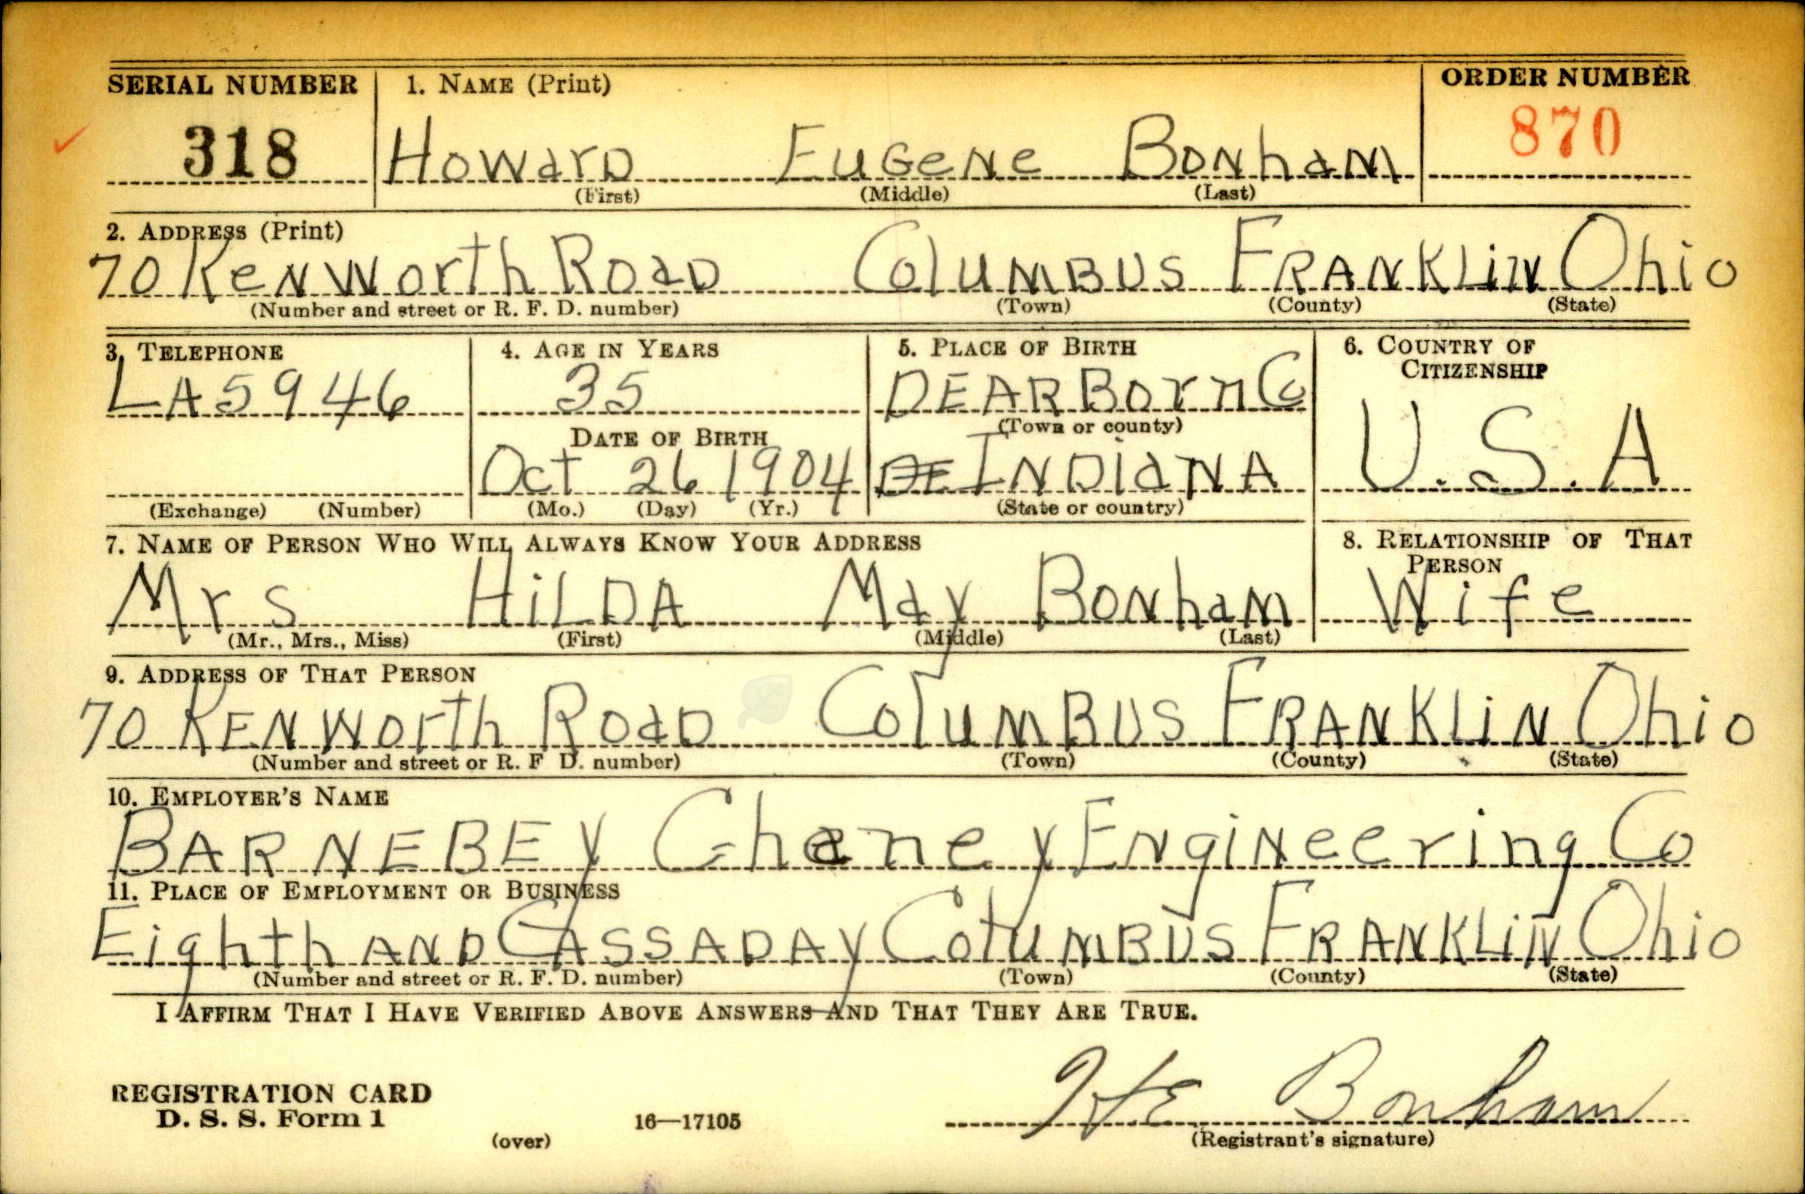 SERIAL NUMBER 1. NAME (Print) ORDER NUMBER
318 Howard Eugene Bonham 870
(First) (Middle) (Last)
2. ADDRESS (Print)
70 Kenworth Road Columbus Franklin Ohio
(Number and street or R. F. D. number) (Town) (County) (State)
3. TELEPHONE 4. AGE IN YEARS 5. PLACE OF BIRTH 6. COUNTRY OF CITIZENSHIP
LA 5946 35 Dearborn Co U.S.A
(Town or county)
DATE OF BIRTH
Oct 26 1904 DE Indiana
(Exchange) (Number) (Mo.) (Day) (Yr.) (State or country)
7. NAME OF PERSON WHO WILL ALWAYS KNOW YOUR ADDRESS 8. RELATIONSHIP OF THAT PERSON
Mrs Hilda May Bonham Wife
(Mr., Mrs., Miss) (First) (Middle) (Last)
9. ADDRESS OF THAT PERSON
70 Kenworth Road Columbus Franklin Ohio
(Number and street or R. F. D. number) (Town) (County) (State)
10. EMPLOYER'S NAME
Barnebey Cheney Engineering Co
11. PLACE OF EMPLOYMENT OR BUSINESS
Eighth and Cassaday Columbus Franklin Ohio
(Number and street or R. F. D. number) (Town) (County) (State)
I AFFIRM THAT I HAVE VERIFIED ABOVE ANSWERS AND THAT THEY ARE TRUE.
REGISTRATION CARD
D. S. S. Form 1 16—17105 HE Bonham
(over) (Registrant's signature)